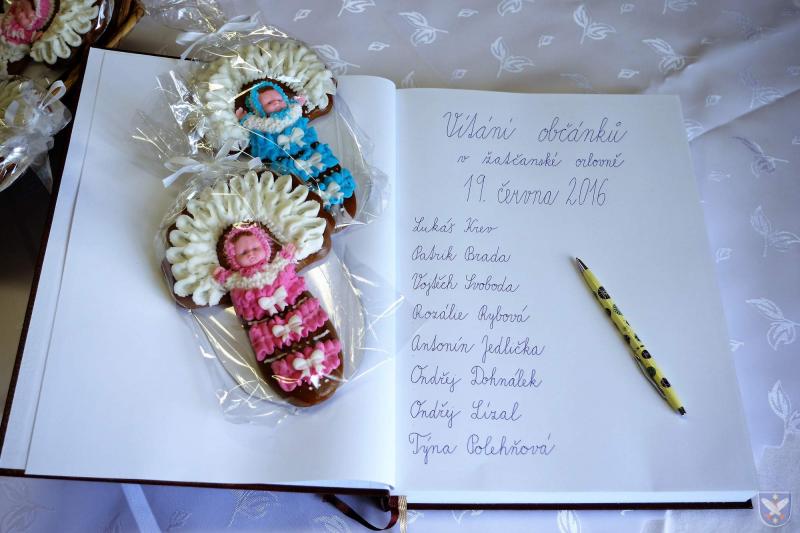 Vítání občánků
v žatčanské orlovně
19. června 2016
Lukáš Krev
Patrik Brada
Vojtěch Svoboda
Rozálie Rybová
Antonín Jedlička
Ondřej Dohnálek
Ondřej Lízal
Týna Polehňová